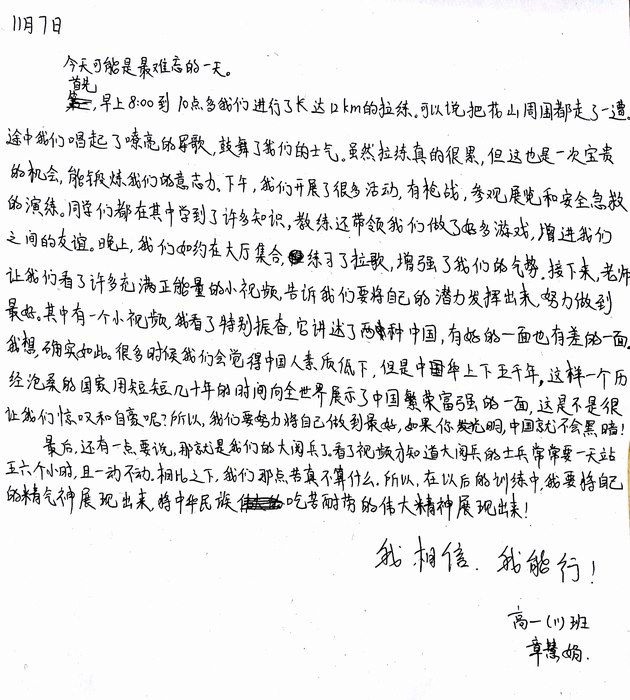 11月7日
今天可能是最难忘的一天。
首先
,早上8:00到10点多我们进行了长达12km的拉练。可以说把花山周围都走了一遭。
途中我们唱起了嘹亮的军歌,鼓舞了我们的士气。虽然拉练真的很累,但这也是一次宝贵
的机会,能锻炼我们的意志力。下午,我们开展了很多活动,有枪战,参观展览和安全急救
的演练。同学们都在其中学到了许多知识,教练还带领我们做了好多游戏,增进我们
之间的友谊。晚上,我们如约在大厅集合,练习了拉歌,增强了我们的气势。接下来,老师
让我们看了许多充满正能量的小视频,告诉我们要将自己的潜力发挥出来,努力做到
最好。其中有一个小视频,我看了特别振奋,它讲述了两种中国,有好的一面也有差的一面。
我想,确实如此。很多时候我们会觉得中国人素质低下,但是中国华上下五千年,这样一个历
经沧桑的国家用短短几十年的时间向全世界展示了中国繁荣富强的一面,这是不是很
让我们惊叹和自豪呢?所以,我们要努力将自己做到最好,如果你光明,中国就不会黑暗!
最后,还有一点要说,那就是我们的大阅兵了。看了视频才知道大阅兵的士兵常常要一天站
五六个小时,且一动不动。相比之下,我们那点苦真不算什么。所以,在以后的训练中,我要将自己
的精气神展现出来,将中华民族吃苦耐劳的伟大精神展现出来!
我相信.我能行!
高一(1)班
章慧娟.